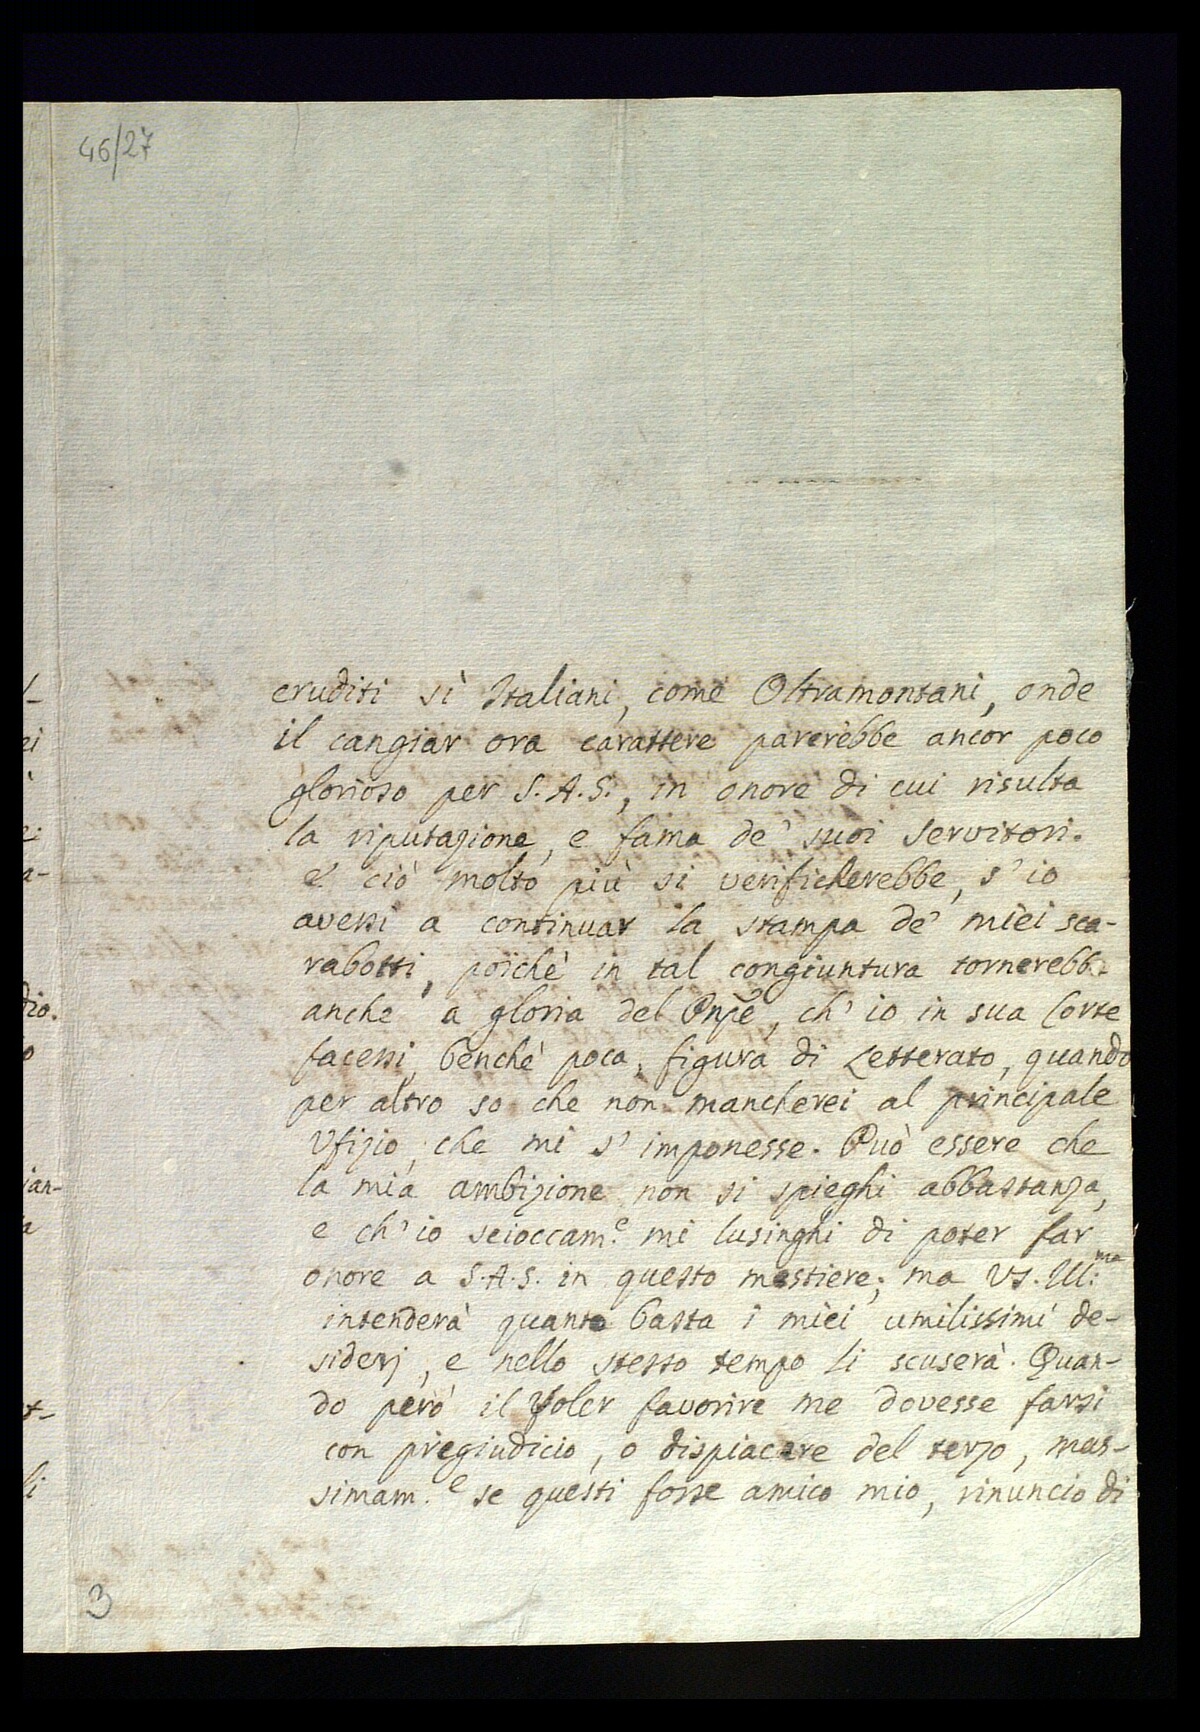 46/27
eruditi sì Italiani, come Oltramontani, onde
il cangiar ora carattere parerebbe ancor poco
glorioso per S.A.S., in onore di cui risulta
la riputazione, e fama de' suoi servitori.
E ciò molto più si verificherebbe, s'io
avessi a continuar la stampa de' miei sca-
rabotti, poichè in tal congiuntura tornerebbe
anche a gloria del Pnpe, ch'io in sua Corte
facessi, benchè poca, figura di Letterato, quando
per altro so che non mancherei al principale
Ufizio, che mi s'imponesse. Può essere che
la mia ambizione non si spieghi abbastanza,
e ch'io scioccam.e mi lusinghi di poter far
onore a S.A.S. in questo mestiere; ma VS. Ill:ma
intenderà quanto basta i miei umilissimi de-
siderj, e nello stesso tempo li scuserà. Quan-
do però il voler favorire me dovesse farsi
con pregiudicio, o dispiacere del terzo, mas-
simam.e se questi fosse amico mio, rinuncio di
3